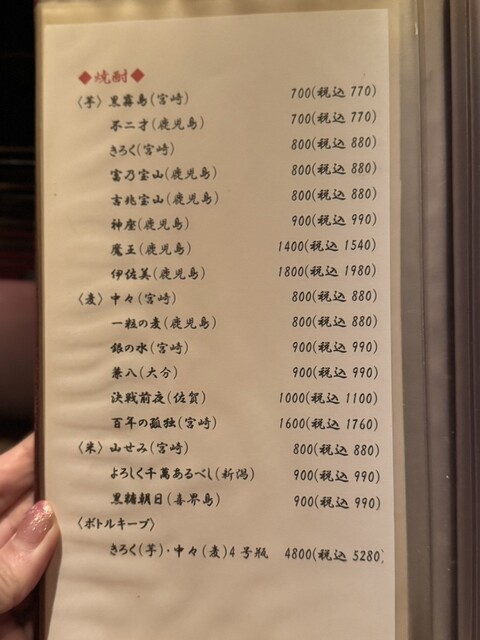 ◆焼酎◆
〈芋〉黒霧島(宮崎) 700(税込 770)
不二才(鹿児島) 700(税込 770)
きろく(宮崎) 800(税込 880)
富乃宝山(鹿児島) 800(税込 880)
吉兆宝山(鹿児島) 800(税込 880)
神座(鹿児島) 900(税込 990)
魔王(鹿児島) 1400(税込 1540)
伊佐美(鹿児島) 1800(税込 1980)
〈麦〉中々(宮崎) 800(税込 880)
一粒の麦(鹿児島) 800(税込 880)
銀の水(宮崎) 900(税込 990)
兼八(大分) 900(税込 990)
決戦前夜(佐賀) 1000(税込 1100)
百年の孤独(宮崎) 1600(税込 1760)
〈米〉山せみ(宮崎) 800(税込 880)
よろしく千萬あるべし(新潟) 900(税込 990)
黒糖朝日(喜界島) 900(税込 990)
〈ボトルキープ〉
きろく(芋)・中々(麦)4号瓶 4800(税込 5280)